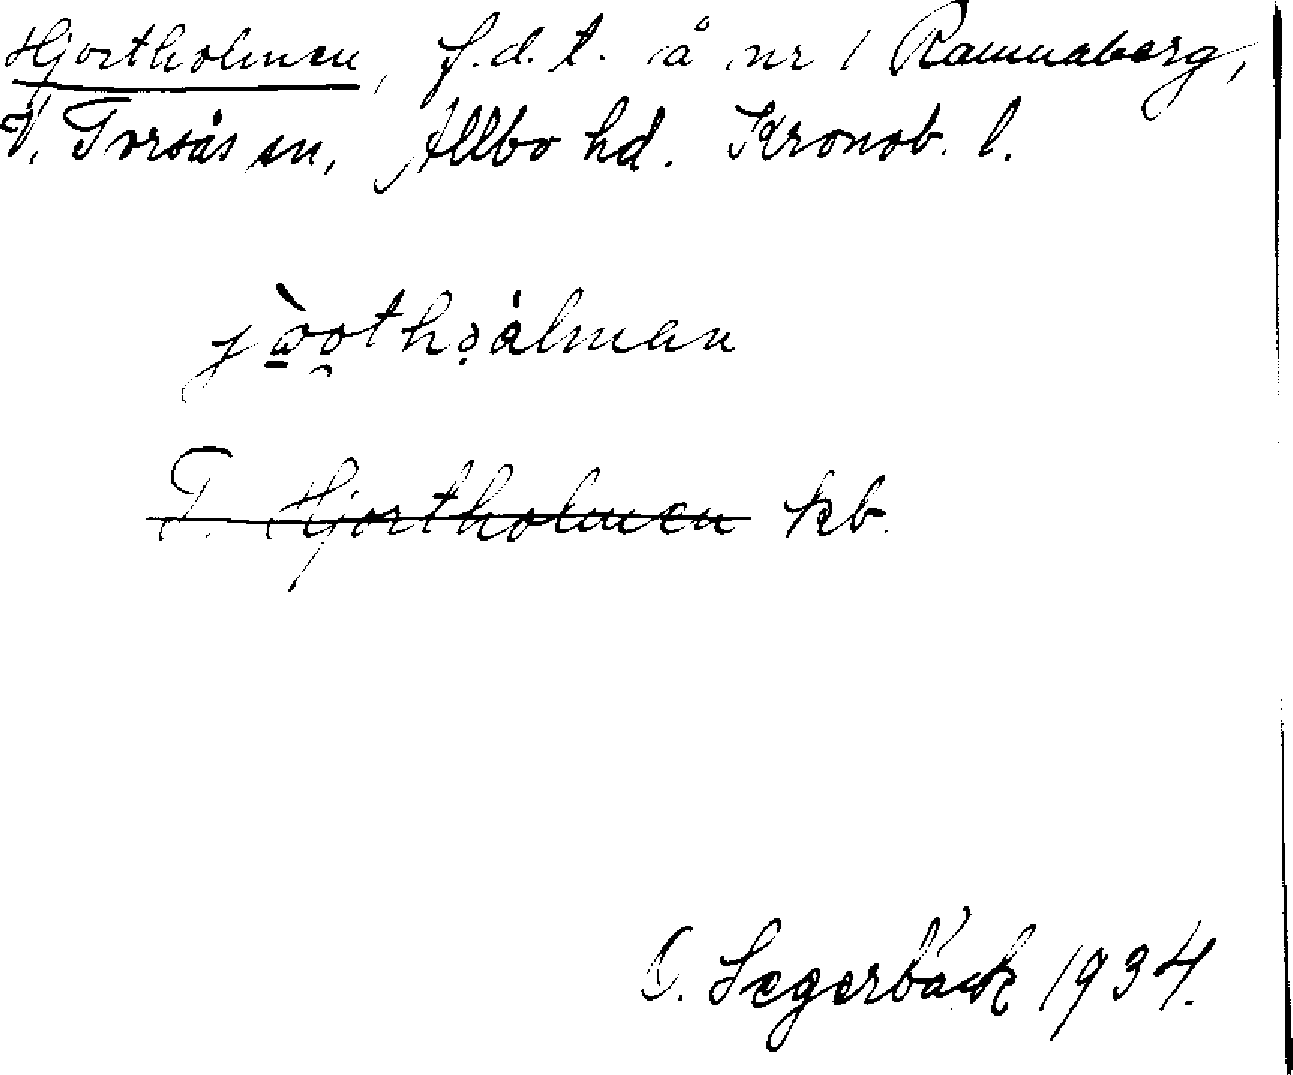 Hjortholmen, f.d.t. å nr 1 Ramnaberg,
V. Torsås sn, Allbo hd. Kronob. l.
T. Hjortholmen kb.
Segerbäck 1934.